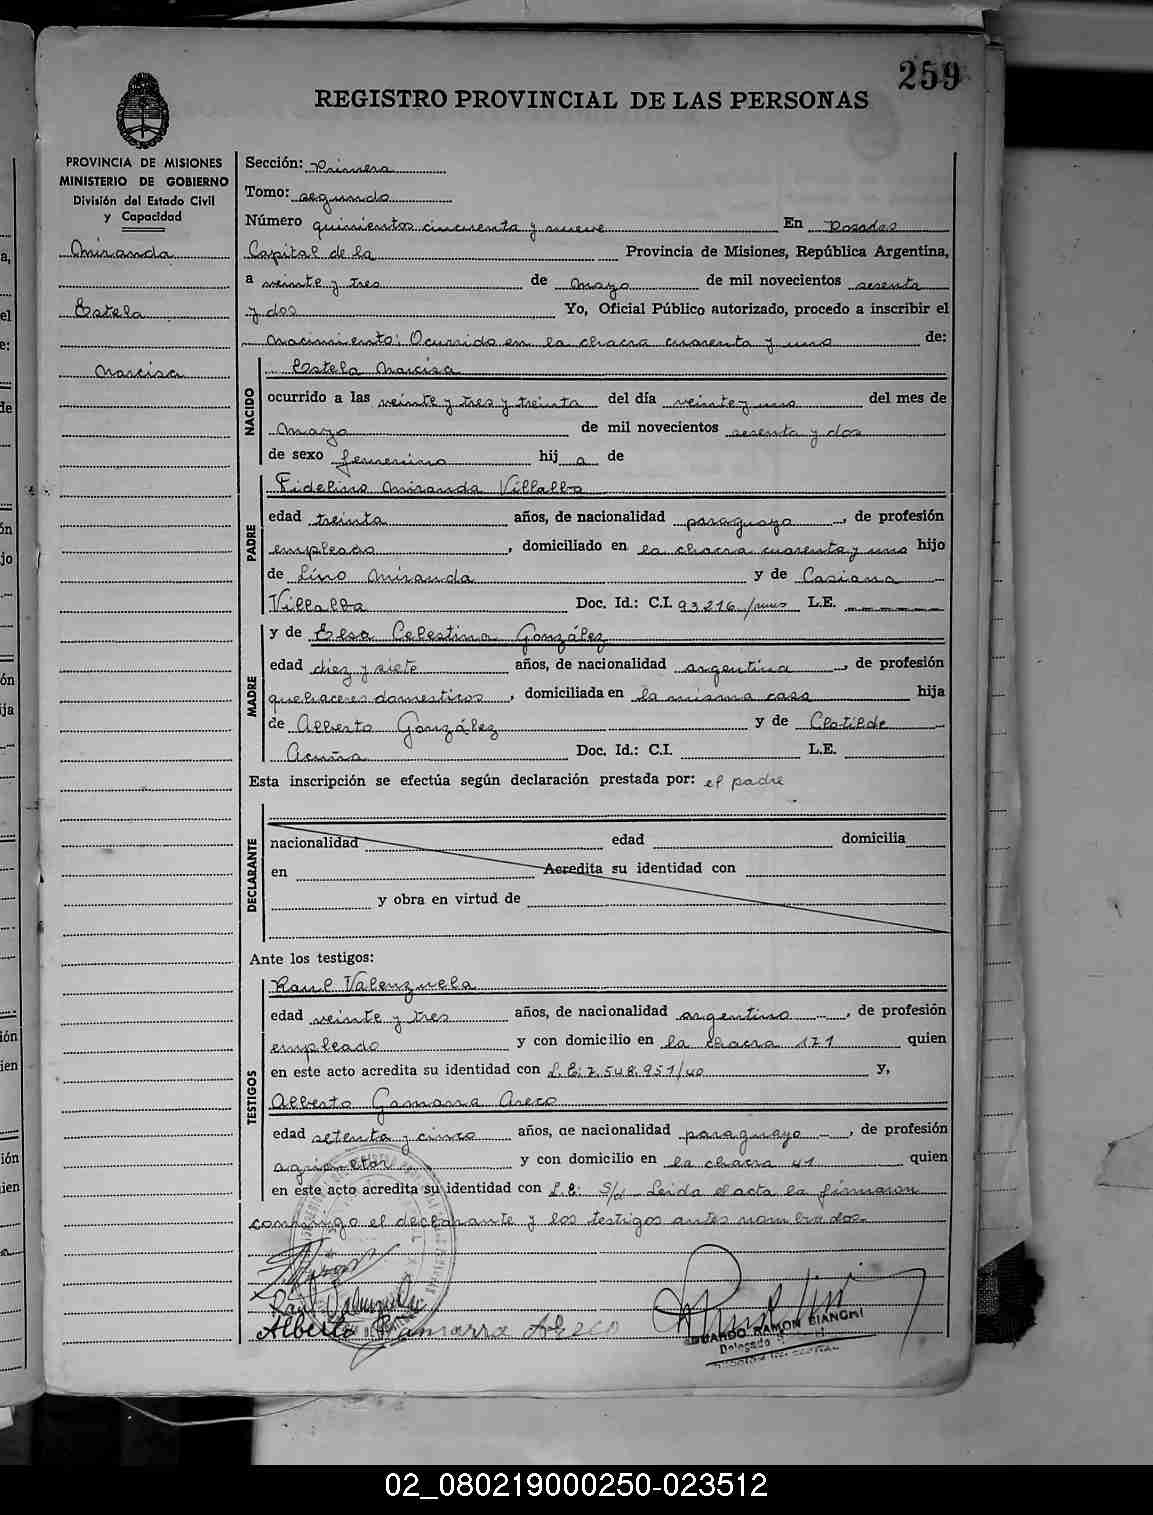 259
REGISTRO PROVINCIAL DE LAS PERSONAS
PROVINCIA DE MISIONES
MINISTERIO DE GOBIERNO
División del Estado Civil
y Capacidad
Miranda
Estela
Narcisa
Sección: Primera
Tomo: segundo
Número quinientos cincuenta y nueve En Posadas
Capital de la Provincia de Misiones, República Argentina,
a veinte y tres de mayo de mil novecientos sesenta
y dos Yo, Oficial Público autorizado, procedo a inscribir el
nacimiento: Ocurrido en la chacra cuarenta y uno de:
NACIDO
Estela Narcisa
ocurrido a las veinte y tres y treinta del día veinte y uno del mes de
Mayo de mil novecientos sesenta y dos
de sexo femenino hij a de
PADRE
Fidelino Miranda Villalba
edad treinta años, de nacionalidad paraguayo, de profesión
empleado, domiciliado en la chacra cuarenta y uno hijo
de Lino Miranda y de Casiana
Villalba Doc. Id.: C.I. 93216/mnes L.E.
MADRE
y de Elsa Celestina González
edad diez y siete años, de nacionalidad argentina, de profesión
quehaceres domesticos, domiciliada en la misma casa hija
de Alberto González y de Clotilde
Acuña Doc. Id.: C.I. L.E.
Esta inscripción se efectúa según declaración prestada por: el padre
DECLARANTE
nacionalidad edad domicilia
en Acredita su identidad con
y obra en virtud de
Ante los testigos:
TESTIGOS
Raul Valenzuela
edad veinte y tres años, de nacionalidad argentino, de profesión
empleado y con domicilio en la chacra 171 quien
en este acto acredita su identidad con L.E: 7.548.951/40 y,
Alberto Gamarra Areco
edad setenta y cinco años, de nacionalidad paraguayo, de profesión
agricultor y con domicilio en la chacra 41 quien
en este acto acredita su identidad con L.E: S/d - Leida el acta la firmaron
conmigo el declarante y los testigos antes nombrados.
Raul Valenzuela
Alberto Gamarra Areco
EDUARDO RAMON BIANCHI
Delegado
02_080219000250-023512